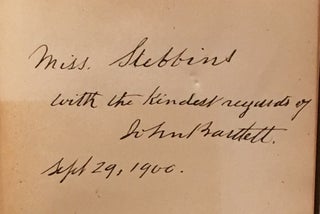 Miss. Stebbins
with the kindest regards of
John Bartlett.
Sept 29, 1900.